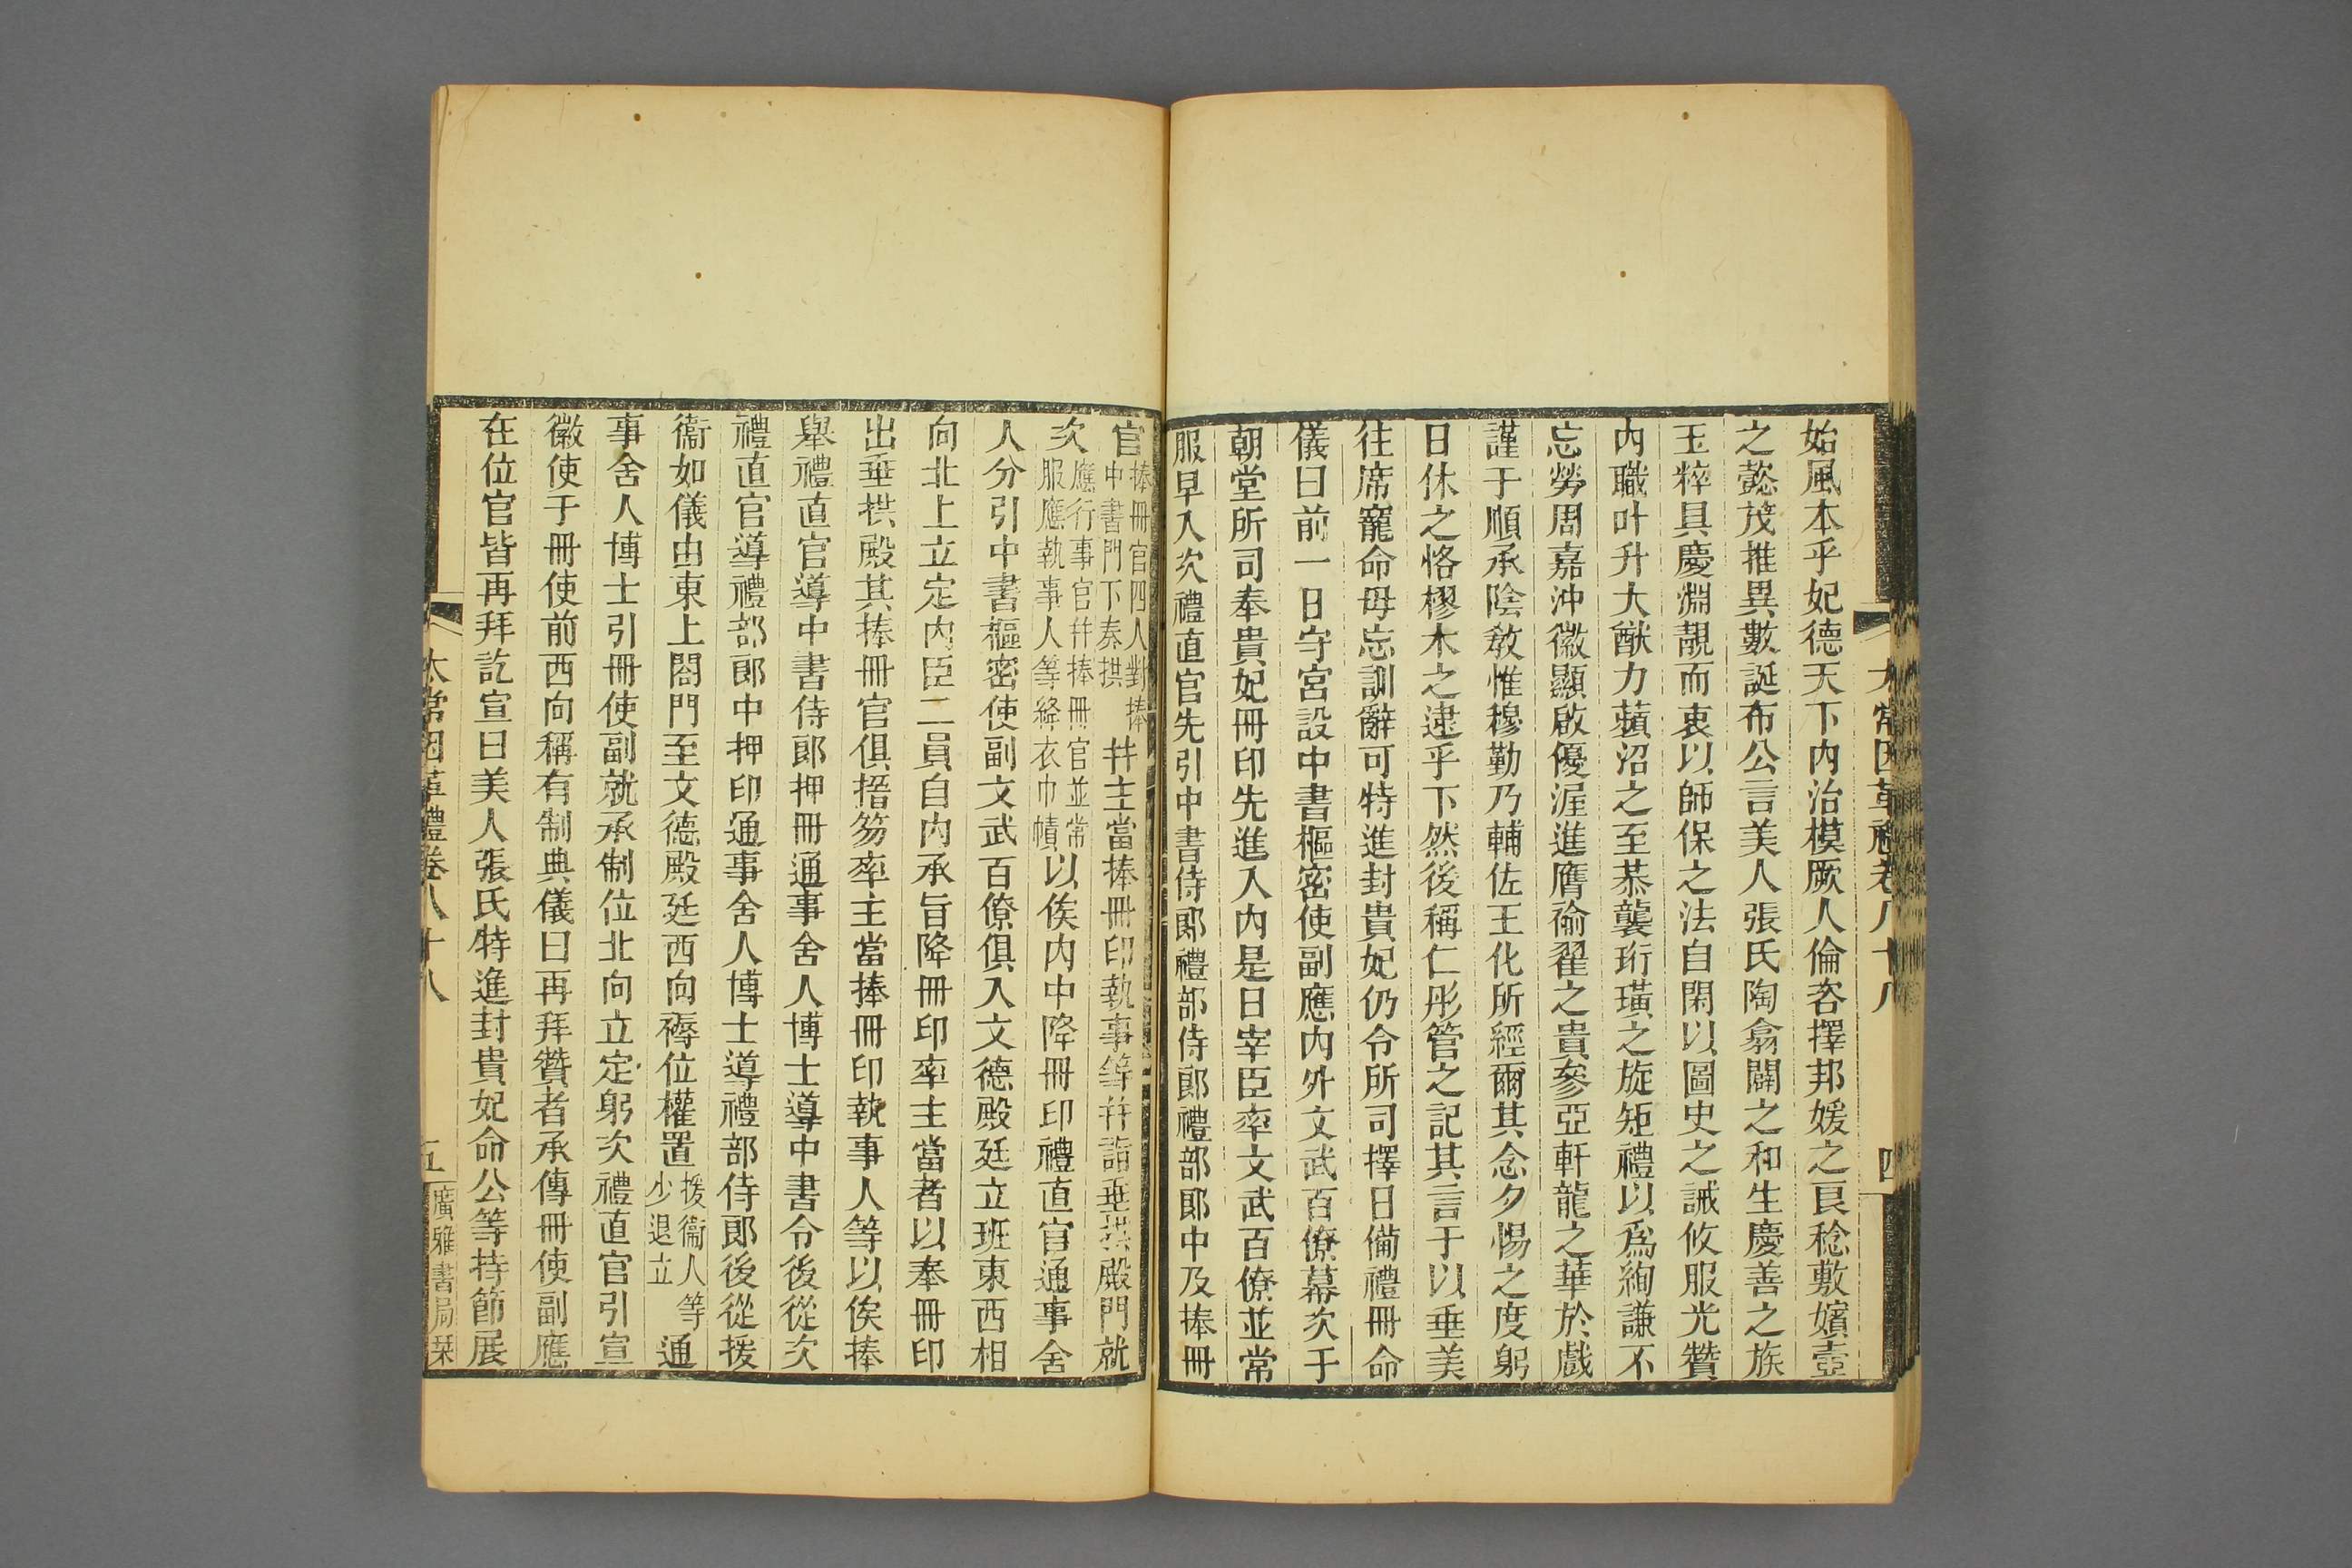 太常因革禮卷八十八
四
始風本乎妃德天下內治模厥人倫咨擇邦媛之良稔敷嬪壼
之懿茂推異數誕布公言美人張氏陶翕闢之和生慶善之族
玉粹具慶淵靚而衷以師保之法自閑以圖史之誡攸服光贊
內職叶升大猷力蘋沼之至恭襲珩璜之旋矩禮以爲絢謙不
忘勞周嘉沖徽顯啟優渥進膺褕翟之貴參亞軒龍之華於戲
謹于順承陰敎惟穆勤乃輔佐王化所經爾其念夕惕之度躬
日休之恪樛木之逮乎下然後稱仁彤管之記其言于以垂美
往席寵命毋忘訓辭可特進封貴妃仍令所司擇日備禮冊命
儀曰前一日守宮設中書樞密使副應內外文武百僚幕次于
朝堂所司奉貴妃冊印先進入內是日宰臣率文武百僚並常
服早入次禮直官先引中書侍郎禮部侍郎禮部郎中及捧冊
官捧冊官四人對捧中書門下奏拱幷主當捧冊印執事等幷詣垂拱殿門就
次應行事官幷捧冊官並常服應執事人等絳衣巾幘以俟內中降冊印禮直官通事舍
人分引中書樞密使副文武百僚俱入文德殿廷立班東西相
向北上立定內臣二員自內承旨降冊印率主當者以奉冊印
出垂拱殿其捧冊官俱搢笏率主當捧冊印執事人等以俟捧
舉禮直官導中書侍郎押冊通事舍人博士導中書令後從次
禮直官導禮部郎中押印通事舍人博士導禮部侍郎後從援
衞如儀由東上閤門至文德殿廷西向褥位權置援衞人等少退立通
事舍人博士引冊使副就承制位北向立定躬次禮直官引宣
徽使于冊使前西向稱有制典儀曰再拜贊者承傳冊使副應
在位官皆再拜訖宣曰美人張氏特進封貴妃命公等持節展
太常因革禮卷八十八
五
廣雅書局栞